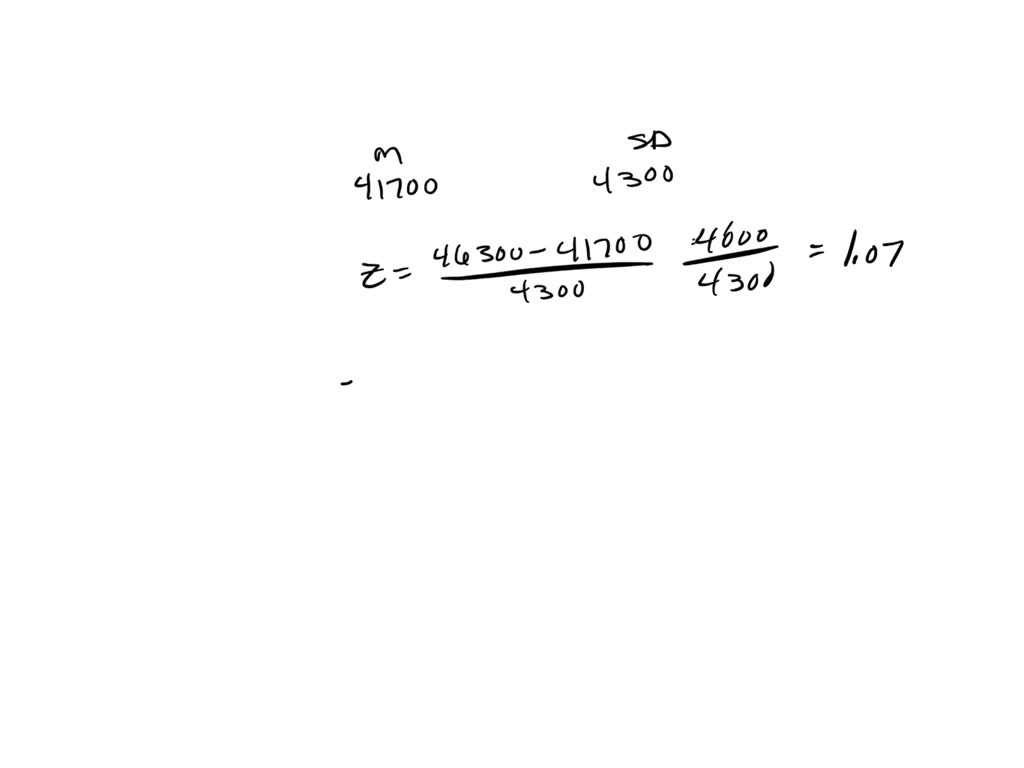 m SD
41700 4300
z = 46300 - 41700 / 4300 4600 / 4300 = 1.07
-